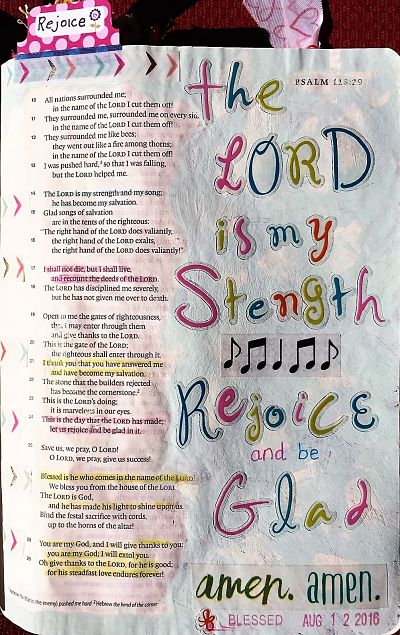 Rejoice
PSALM 118:29
10 All nations surrounded me;
in the name of the LORD I cut them off!
11 They surrounded me, surrounded me on every side;
in the name of the LORD I cut them off!
12 They surrounded me like bees;
they went out like a fire among thorns;
in the name of the LORD I cut them off!
13 I was pushed hard, so that I was falling,
but the LORD helped me.
14 The LORD is my strength and my song;
he has become my salvation.
15 Glad songs of salvation
are in the tents of the righteous:
"The right hand of the LORD does valiantly,
16 the right hand of the LORD exalts,
the right hand of the LORD does valiantly!"
17 I shall not die, but I shall live,
and recount the deeds of the LORD.
18 The LORD has disciplined me severely,
but he has not given me over to death.
19 Open to me the gates of righteousness,
that I may enter through them
and give thanks to the LORD.
20 This is the gate of the LORD;
the righteous shall enter through it.
21 I thank you that you have answered me
and have become my salvation.
22 The stone that the builders rejected
has become the cornerstone.2
23 This is the LORD's doing;
it is marvelous in our eyes.
24 This is the day that the LORD has made;
let us rejoice and be glad in it.
25 Save us, we pray, O LORD!
O LORD, we pray, give us success!
26 Blessed is he who comes in the name of the LORD!
We bless you from the house of the LORD.
27 The LORD is God,
and he has made his light to shine upon us.
Bind the festal sacrifice with cords,
up to the horns of the altar!
28 You are my God, and I will give thanks to you;
you are my God; I will extol you.
29 Oh give thanks to the LORD, for he is good;
for his steadfast love endures forever!
the enemy) pushed me hard 2 Hebrew the head of the corner
the
LORD
is my
Stength
Rejoice
and be
Glad
amen. amen.
BLESSED AUG 12 2016